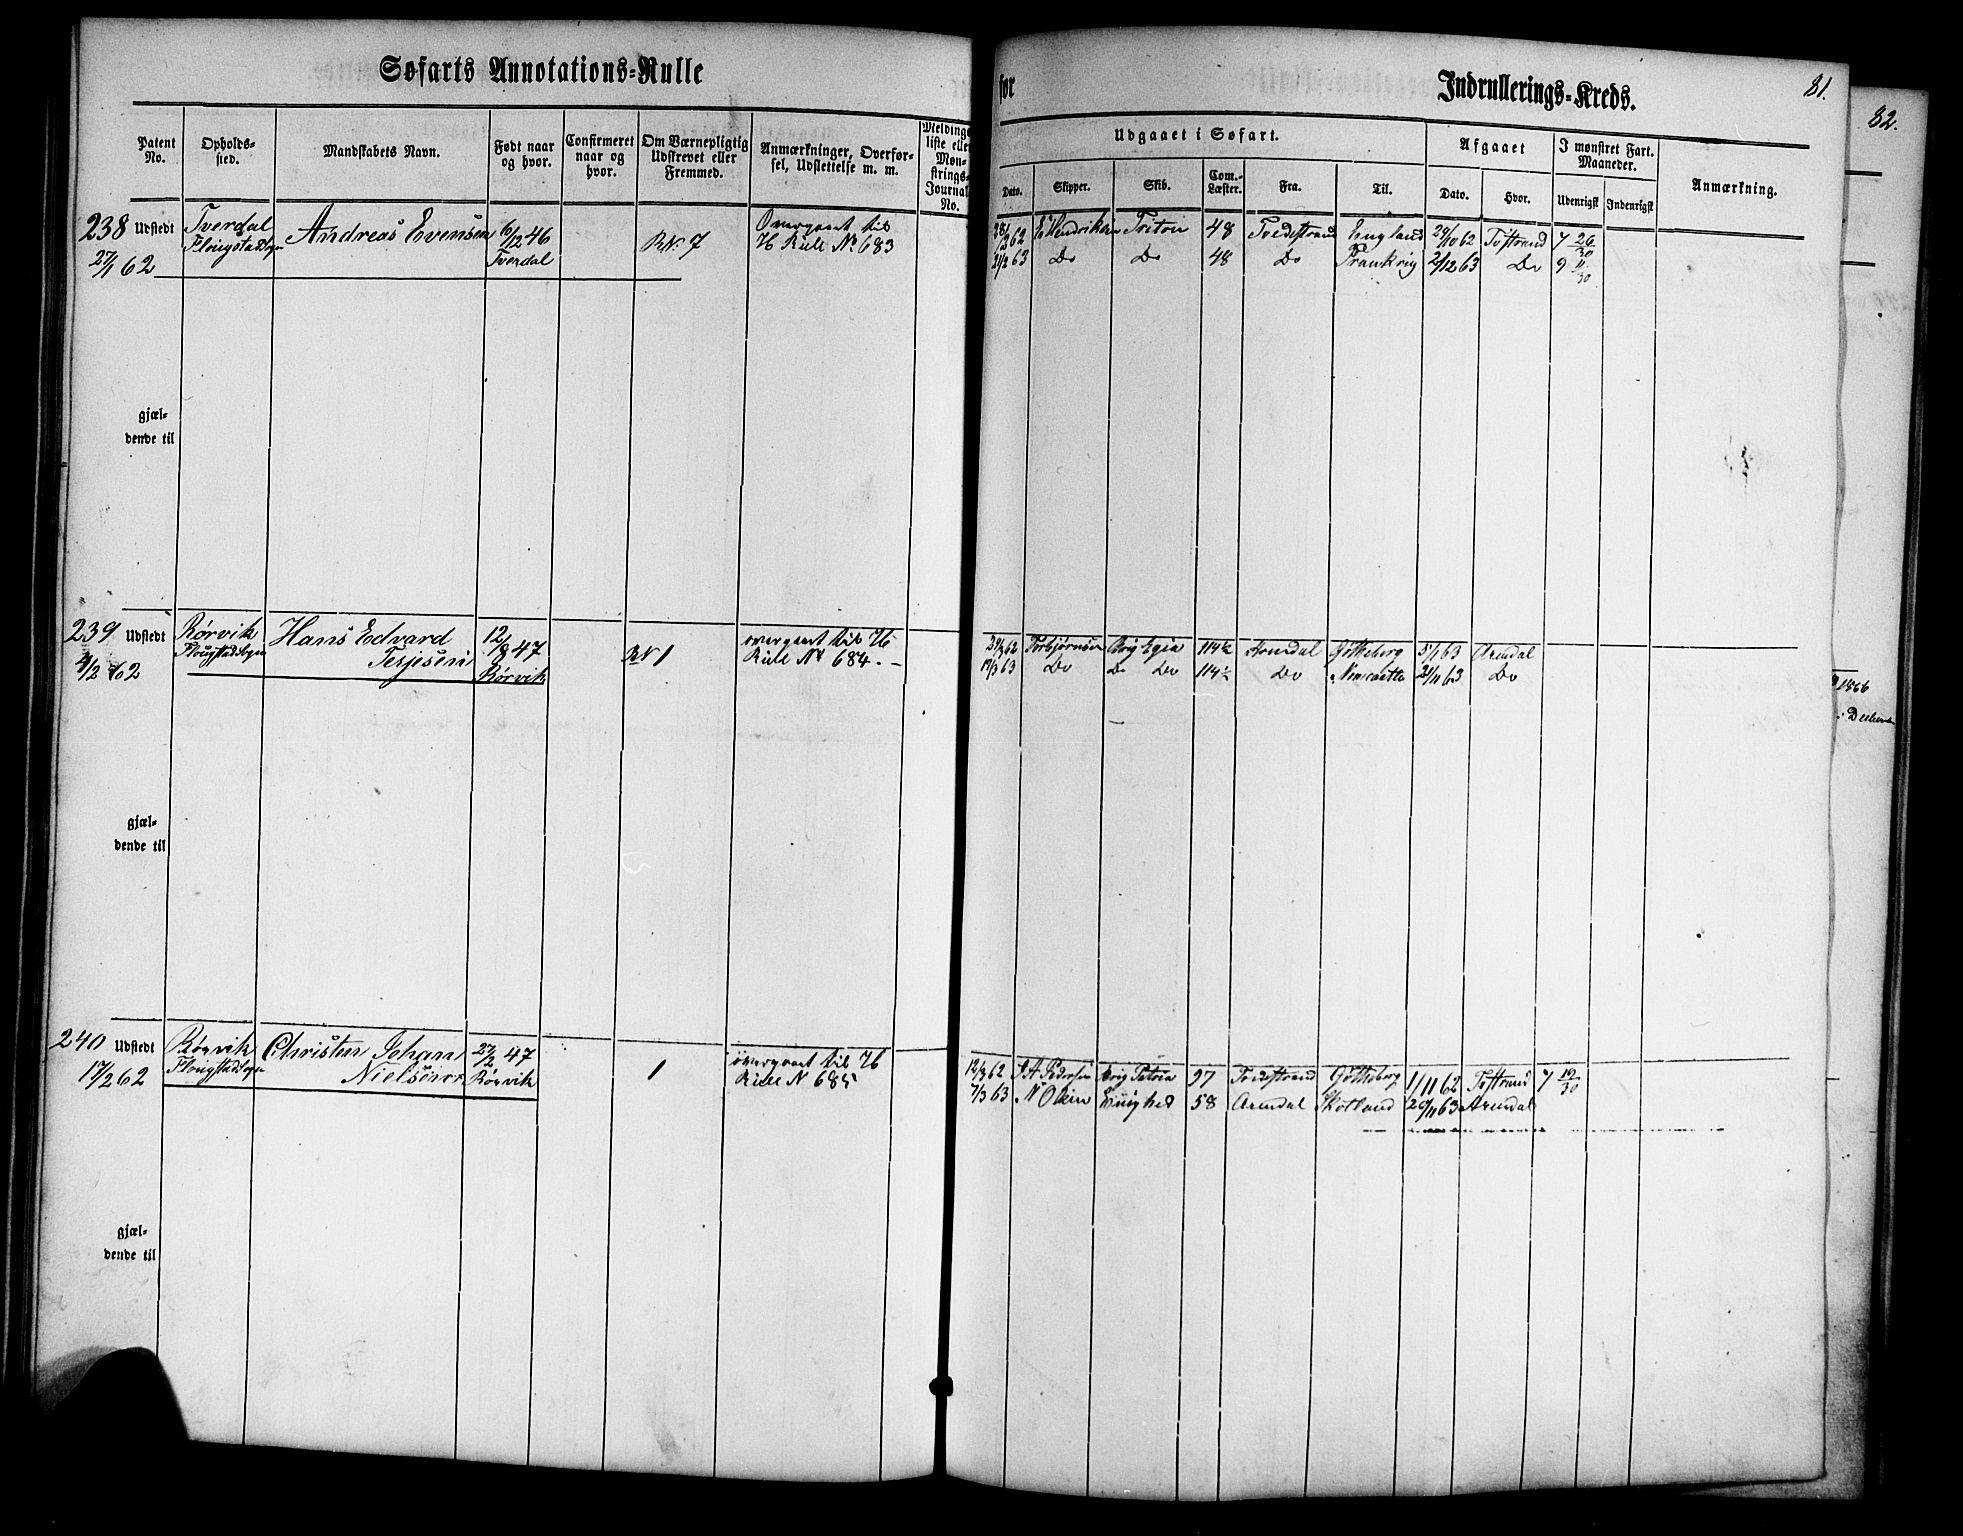 Søfarts Annotations-Rulle
for
Indrullerings-Kreds.
81.
82.
Patent No.
Opholds-sted.
Mandskabets Navn.
Født naar og hvor.
Confirmeret naar og hvor.
Om Værnepligtig Udskrevet eller Fremmed.
Anmærkninger, Overførsel, Udslettelse m. m.
Meldings liste eller Møn-strings-Journal No.
Udgaaet i Søfart.
Afgaaet
I mønstret Fart. Maaneder.
Anmærkning.
Dato.
Skipper.
Skib.
Com.-Læster.
Fra.
Til.
Dato.
Hvor.
Udenrigsk
Indenrigsk
238 Udstedt Tverdal Andreas Evensen 6/12 46 RN. 7 Overgaaet til
27/1 62 Flougstadsogn Tverdal H Rulle No 683
28/2 62 Hendriksen Triton 48 Tvedestrand England 29/10 62 Tvstrand 7 26/30
21/2 63 Do Do 48 Do Frankrig 2/12 63 Do 9 11/30
gjæl-
dende til
239 Udstedt Rørvik Hans Edvard 12/8 47 RN 1 overgaaet til H
4/2 62 Flougstadsogn Terjesen Rørvik Rulle No 684.
62 Torbjørnsen Brig Egia 114½ Arendal Götheborg 5/1 63 Arendal
19/3 63 Do Do Do 114½ Do Newcastle 21/11 63 Do
gjæl-
dende til
240 Udstedt Rørvik Christen Johan 27/2 47 1 overgaaet til H
17/2 62 Flougstadsogn Nielsen Rørvik Rulle N 685
12/3 62 Pedersen Brig Petria 97 Tvedestrand Götheborg 1/11 62 Tvstrand 7 19/30
7/3 63 N Olsen Enighed 58 Arendal Skotland 20/11 63 Arendal
gjæl-
dende til
1866